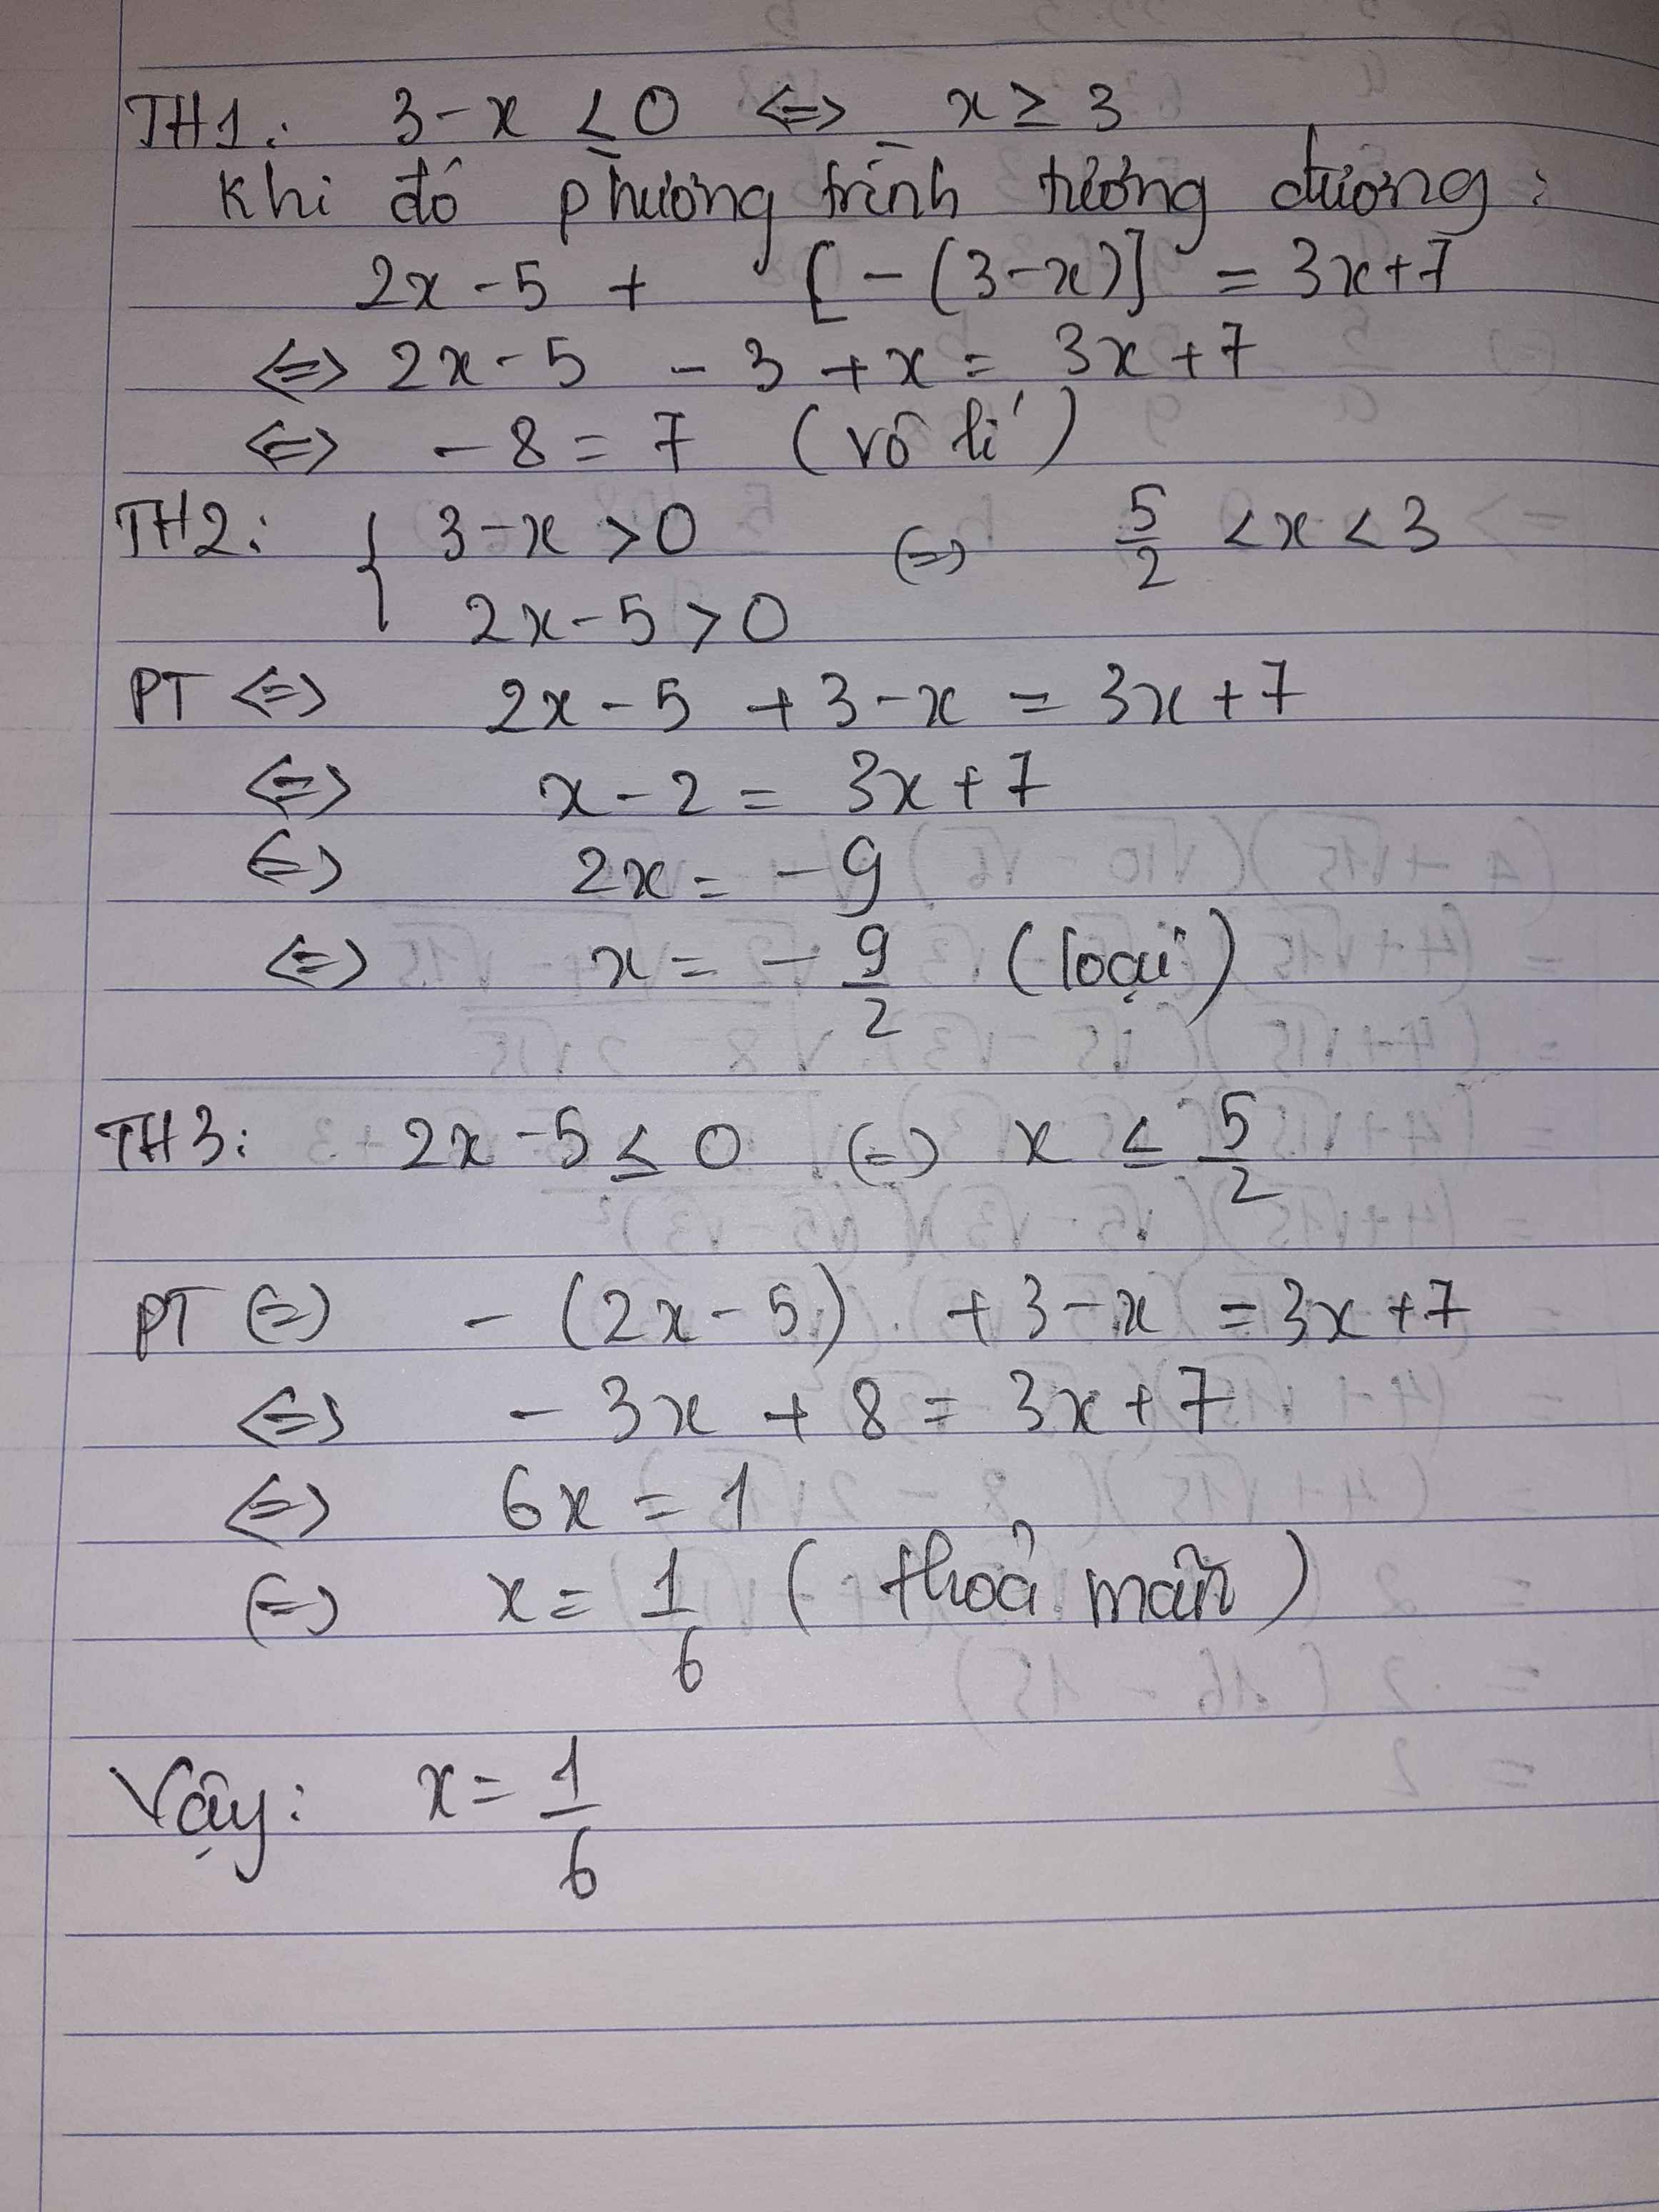 TH1: 3-x ≤ 0 <=> x ≥ 3
Khi đó phương trình tương đương:
2x - 5 + [-(3-x)] = 3x+7
<=> 2x - 5 - 3 + x = 3x + 7
<=> -8 = 7 (vô lí)
TH2: { 3-x > 0 (=) 5/2 < x < 3
2x-5 > 0
PT <=> 2x - 5 + 3 - x = 3x + 7
<=> x - 2 = 3x + 7
<=> 2x = -9
<=> x = -9/2 (loại)
TH3: 2x - 5 ≤ 0 (=) x ≤ 5/2
PT (=) -(2x - 5) + 3 - x = 3x + 7
<=> -3x + 8 = 3x + 7
<=> 6x = 1
(=) x = 1/6 (thoả mãn)
Vậy: x = 1/6